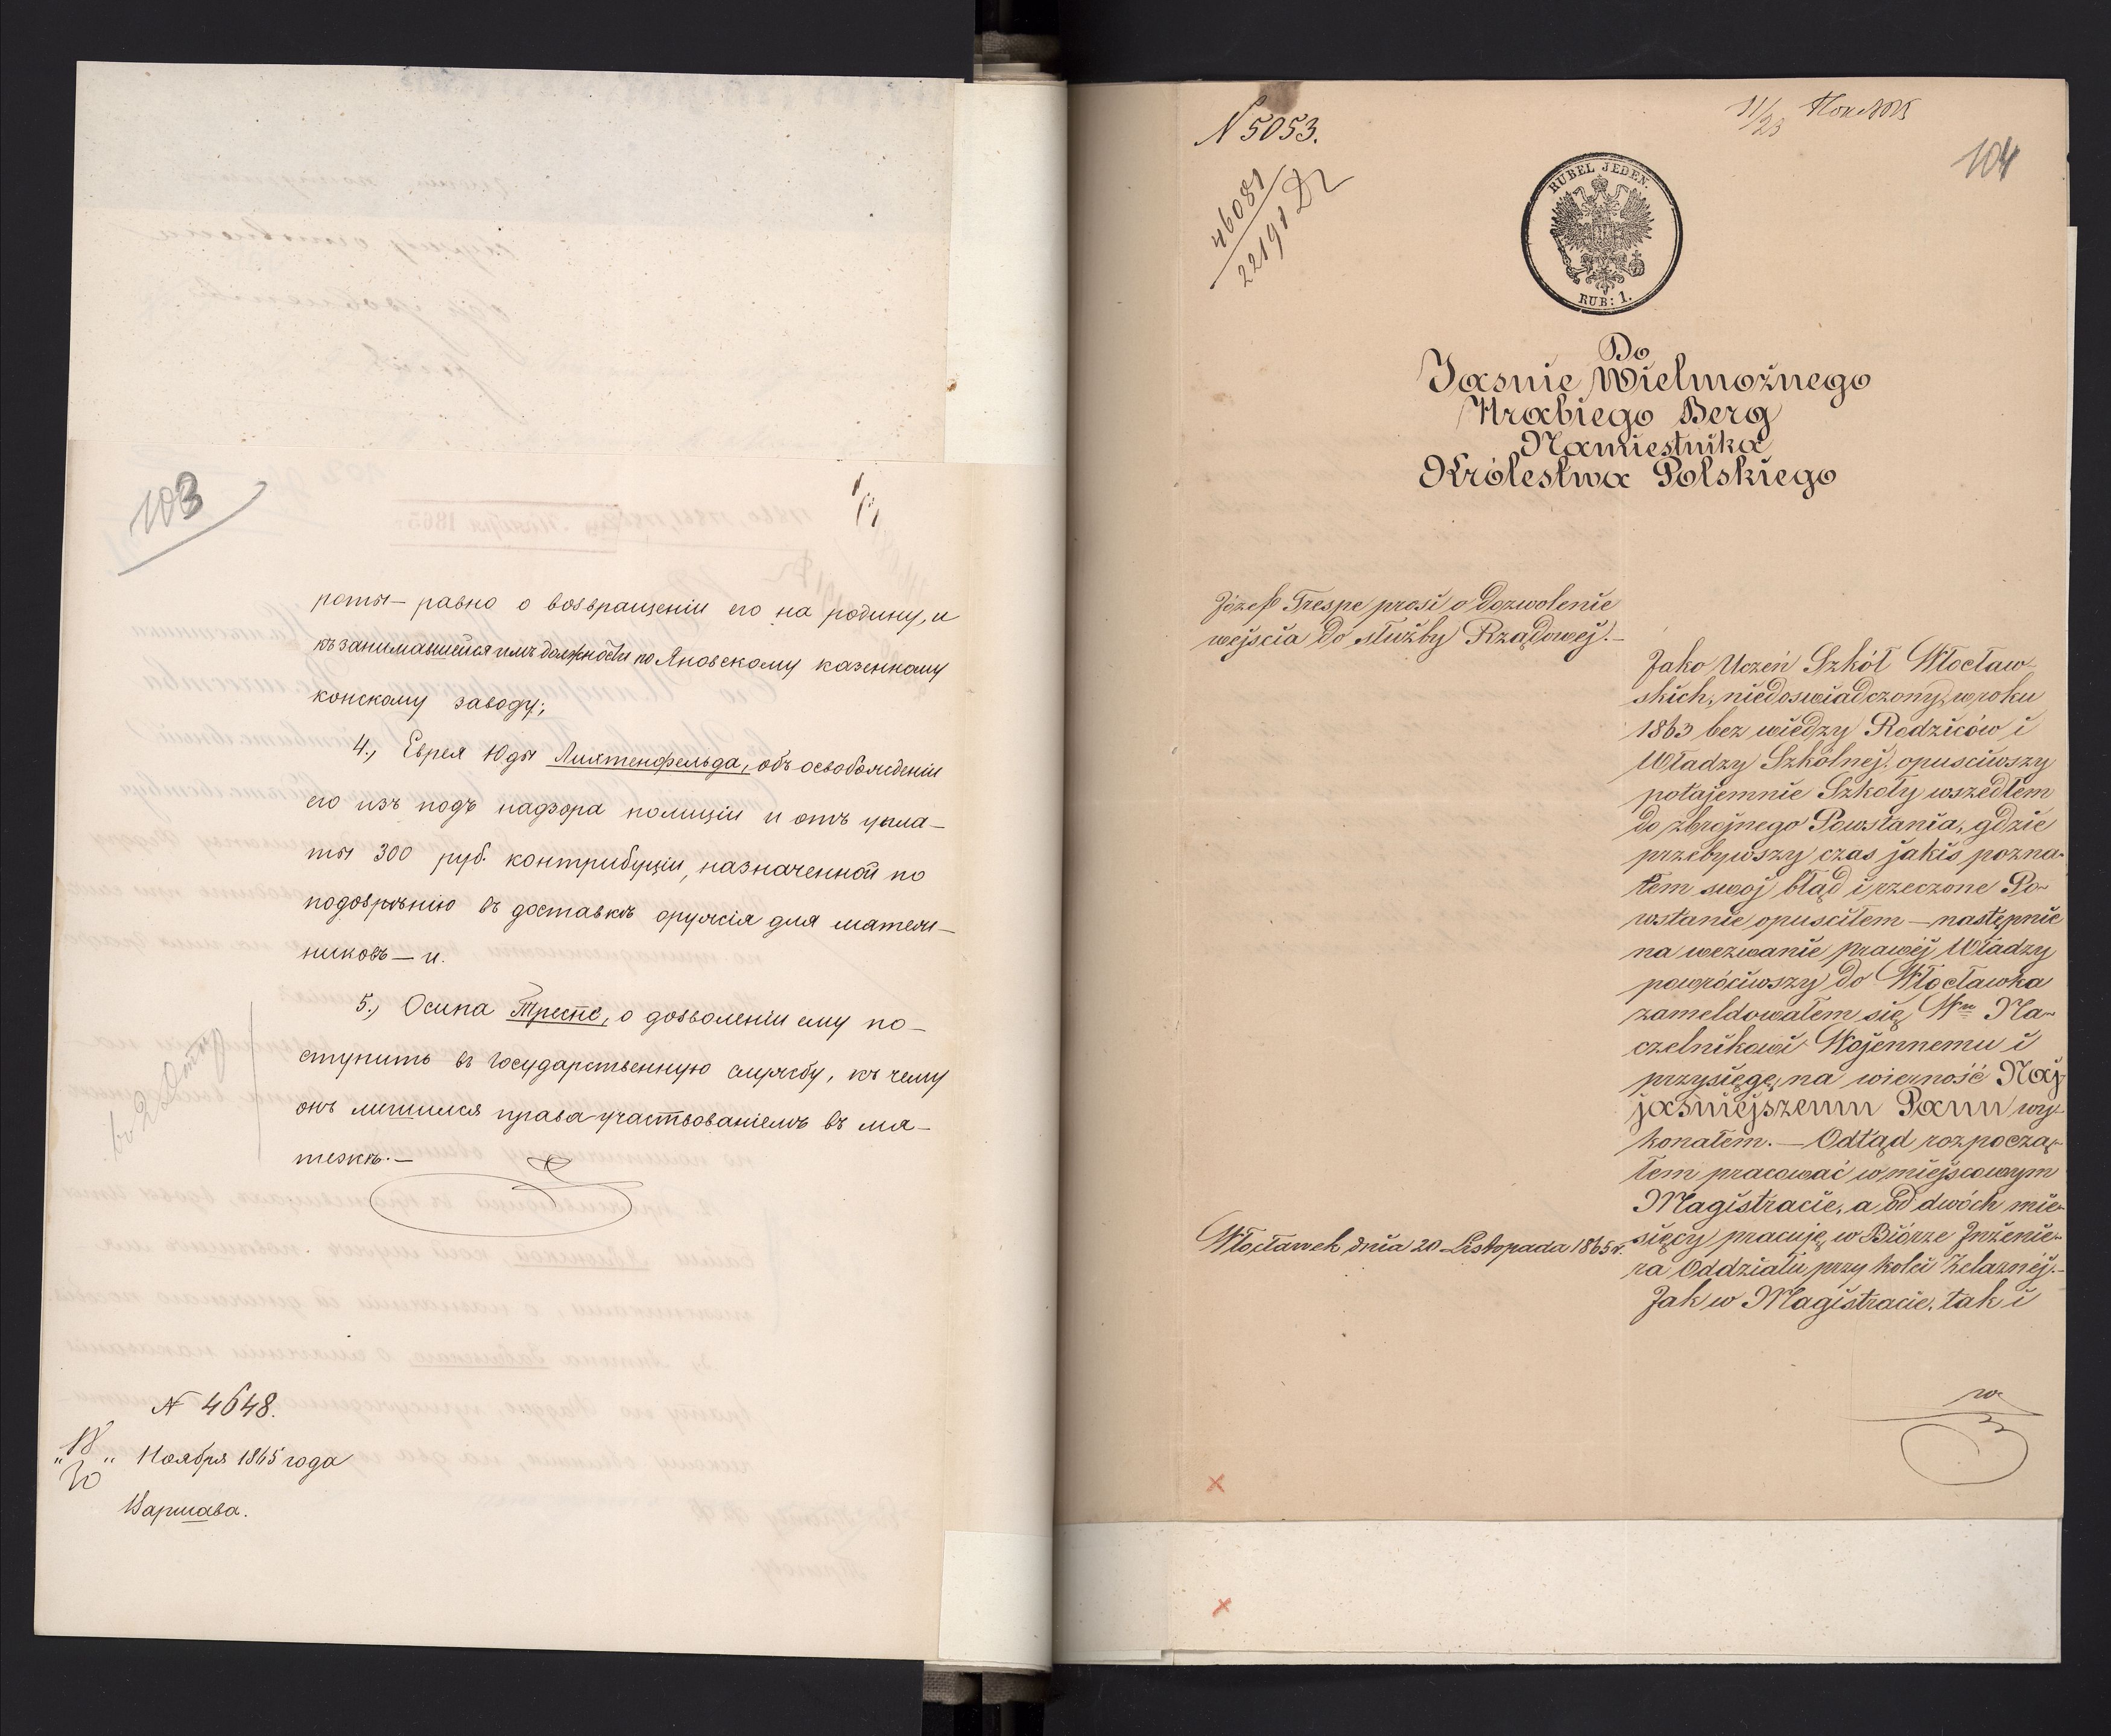 103
роты — равно о возвращеніи его на родину, и
къ занимавшейся имъ должности по Яновскому казенному
конскому заводу;
4., Еврея Юды Лихтенфельда, объ освобожденіи
его изъ подъ надзора полиціи и отъ упла—
ты 300 руб. контрибуціи, назначенной по
подозрѣнію въ доставкѣ оружія для мятеж—
никовъ — и.
5., Осипа Треспе, о дозволеніи ему по—
ступить въ Государственную службу, къ чему
онъ лишился права участвованіемъ въ мя—
тежѣ. —
N 4648.
„18/30„ Ноября 1865 года
Варшава.
N 5053.
46081
22191
11/23
104
RUBEL JEDEN.
RUB: 1.
Do
Jasnie Wielmożnego
Hrabiego Berg
Namiestnika
Królestwa Polskiego
Józef Trespe prosi o Dozwolenie
wejścia do służby Rządowej. —
Jako Uczeń Szkół Włocław-
skich, niedoswiadczony, w roku
1863 bez wiedzy Rodziców i
Władzy Szkolnej, opusciwszy
potajemnie Szkoły wszedłem
do zbrojnego Powstania, gdzie
przebywszy czas jakis, pozna-
łem swoj błąd i rzeczone Po-
wstanie opuscilem — następnie
na wezwanie prawej Władzy
powróciwszy do Włocławka
zameldowałem się Wmu Na-
czelnikowi Wojennemu i
przysięgę na wierność Naj-
jaśniejszemu Panu wy-
konałem. — Odtąd rozpoczą-
łem pracować w miejscowym
Magistracie, a od dwóch mie-
sięcy pracuję w Biórze Inżenie-
ra Oddziału przy kolei Żelaznej. —
Jak w Magistracie, tak i
Włocławek dnia 20 Listopada 1865 r.
w